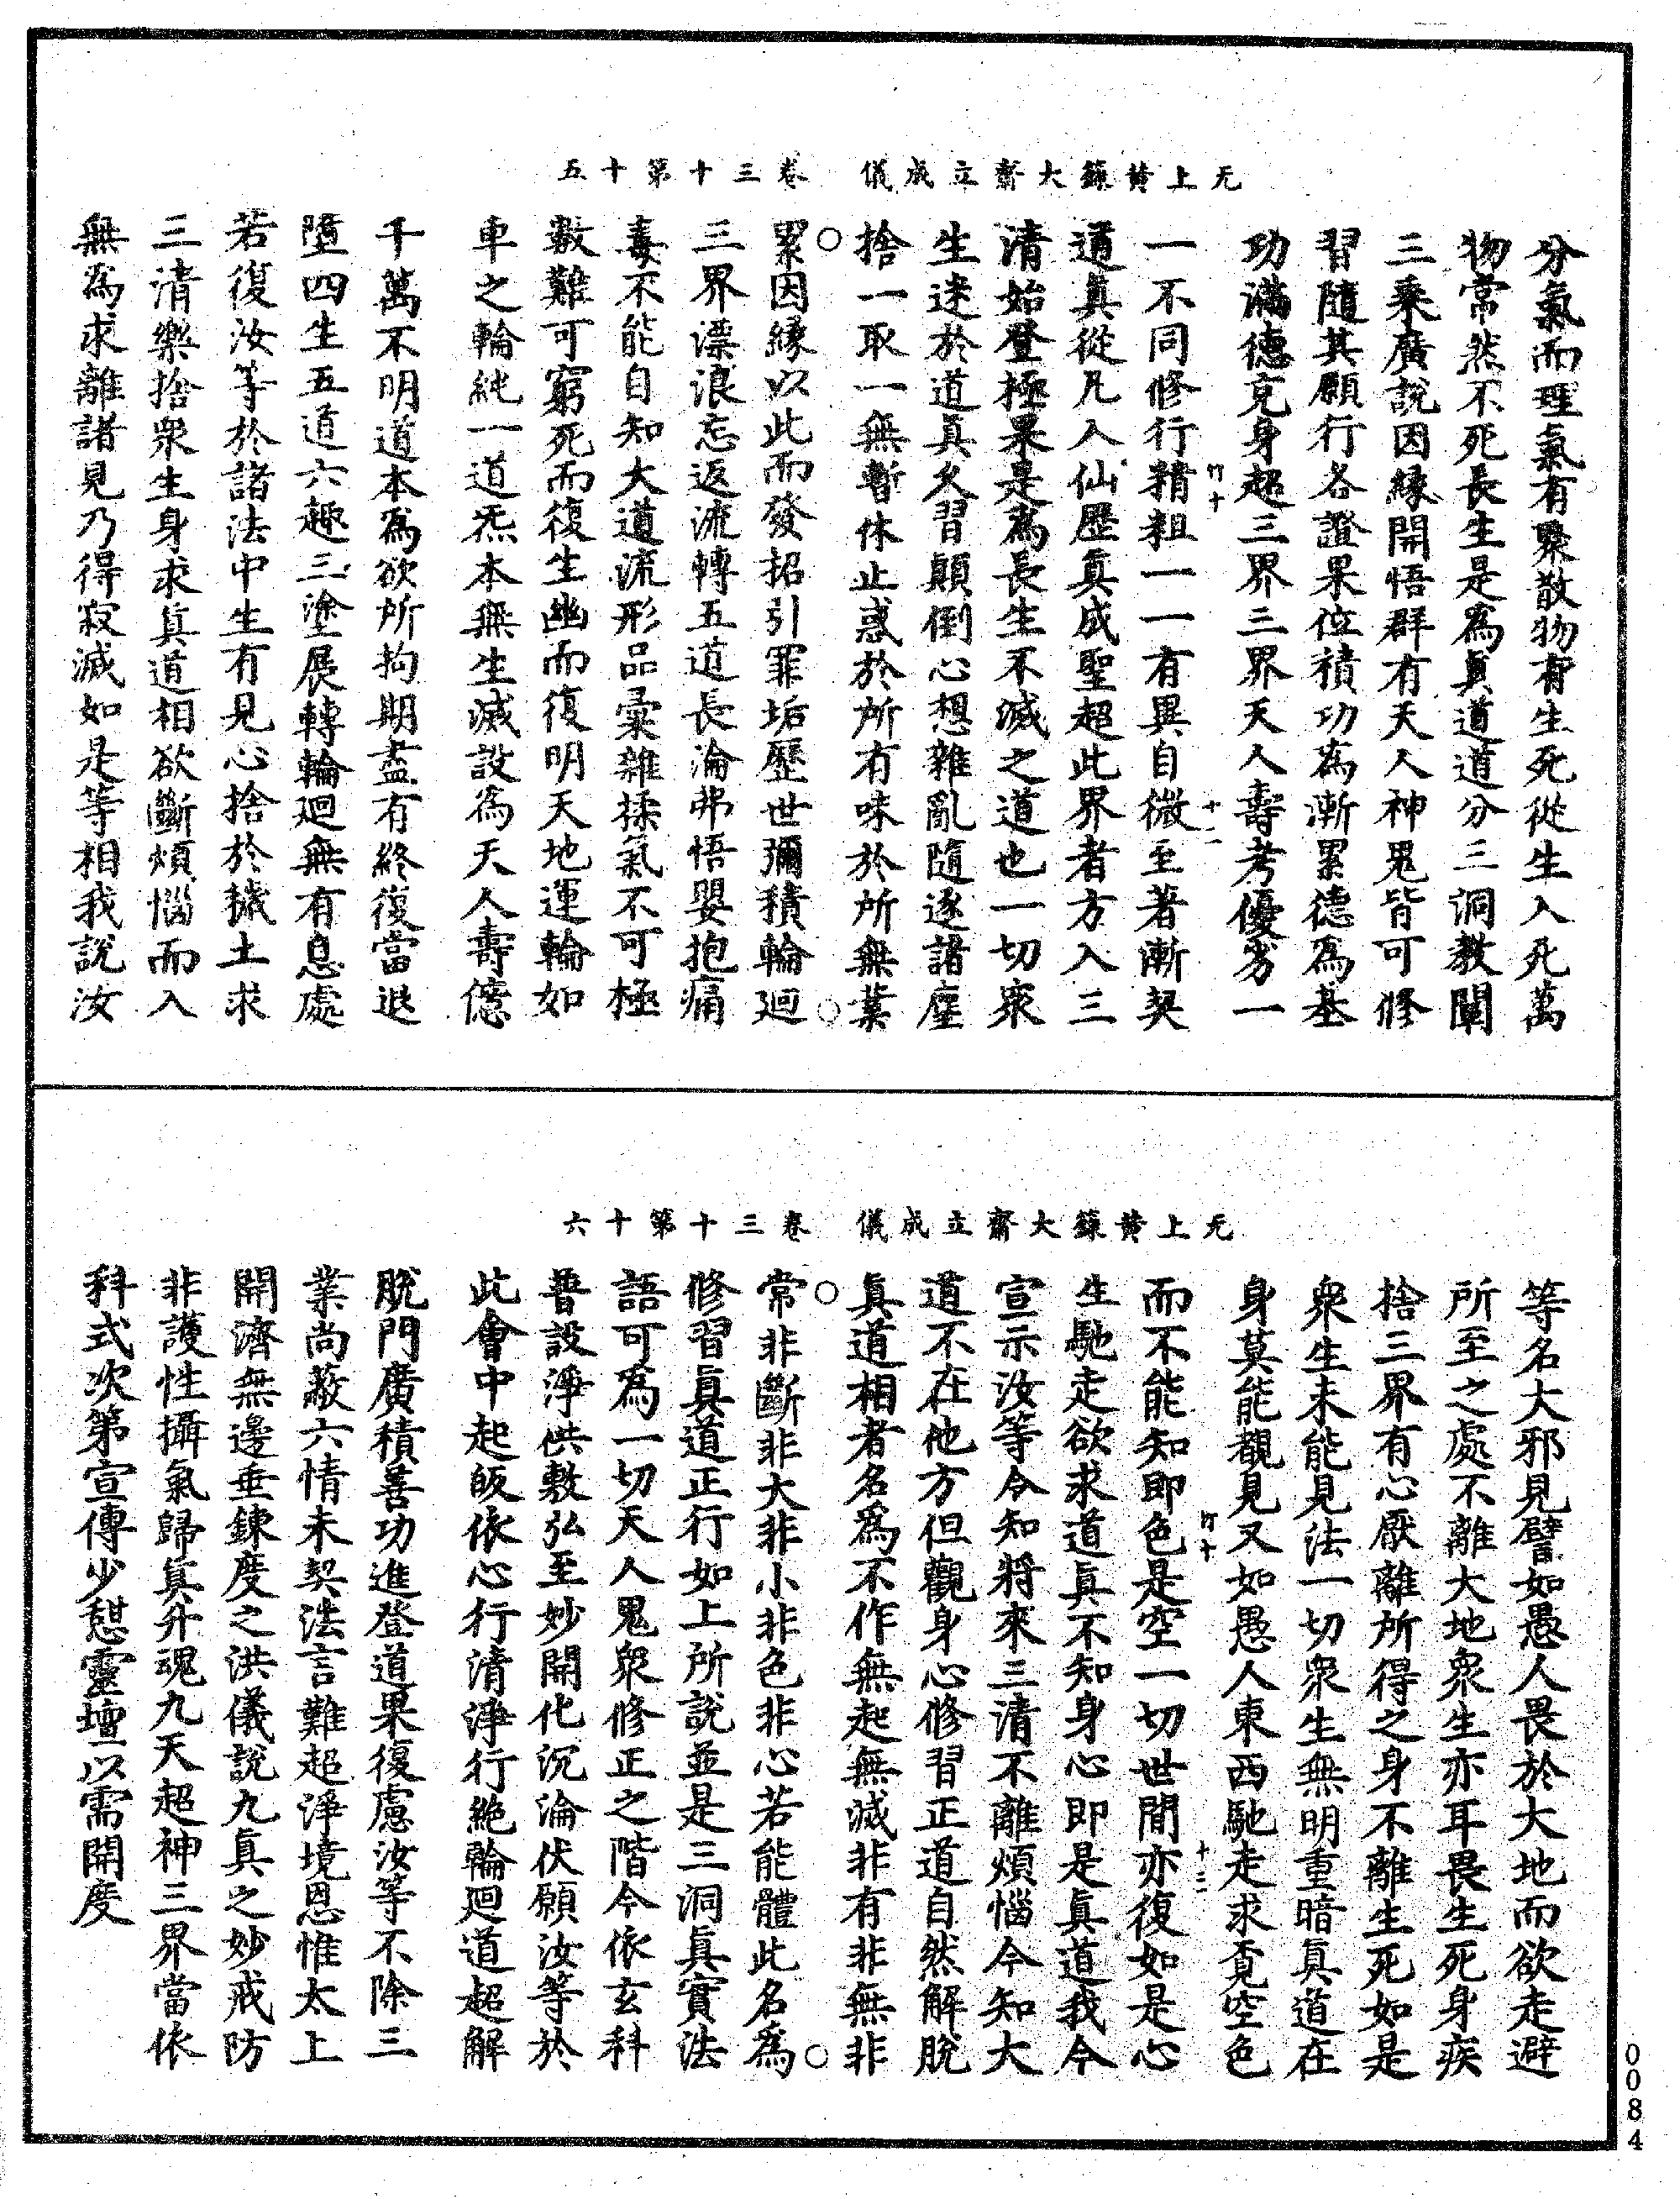 无上黃籙大齋立成儀　卷三十第十五
分氣而理氣有聚散物有生死從生入死萬
物常然不死長生是為真道道分三洞教闡
三乘廣說因緣開悟群有天人神鬼皆可修
習隨其願行各證果位積功為漸累德為基
功滿德充身超三界三界天人壽考優劣一
竹十　十二
一不同修行精粗一一有異自微至著漸契
通真從凡入仙歷真成聖超此界者方入三
清始登極果是為長生不滅之道也一切衆
生迷於道真久習顛倒心想雜亂隨逐諸塵
捨一取一無暫休止惑於所有味於所無業
○　○
累因緣以此而發招引罪垢歷世彌積輪迴
三界漂浪忘返流轉五道長淪弗悟嬰抱痛
毒不能自知大道流形品彙雜揉氣不可極
數難可窮死而復生幽而復明天地運輪如
車之輪純一道炁本無生滅設為天人壽億
千萬不明道本為欲所拘期盡有終復當退
墮四生五道六趣三塗展轉輪迴無有息處
若復汝等於諸法中生有見心捨於穢土求
三清樂捨衆生身求真道相欲斷煩惱而入
無為求離諸見乃得寂滅如是等相我說汝
无上黃籙大齋立成儀　卷三十第十六
等名大邪見譬如愚人畏於大地而欲走避
所至之處不離大地衆生亦耳畏生死身疾
捨三界有心厭離所得之身不離生死如是
衆生未能見法一切衆生無明重暗真道在
身莫能覩見又如愚人東西馳走求覔空色
竹十　十三
而不能知即色是空一切世間亦復如是心
生馳走欲求道真不知身心即是真道我今
宣示汝等今知將來三清不離煩惱今知大
道不在他方但觀身心修習正道自然解脫
真道相者名為不作無起無滅非有非無非
○　○
常非斷非大非小非色非心若能體此名為
修習真道正行如上所說並是三洞真實法
語可為一切天人鬼衆修正之階今依玄科
普設淨供敷弘至妙開化沉淪伏願汝等於
此會中起皈依心行清淨行絶輪迴道超解
脫門廣積善功進登道果復慮汝等不除三
業尚蔽六情未契法言難超淨境恩惟太上
開濟無邊垂鍊度之洪儀說九真之妙戒防
非護性攝氣歸真升魂九天超神三界當依
科式次第宣傳少懇靈壇以需開度
0084